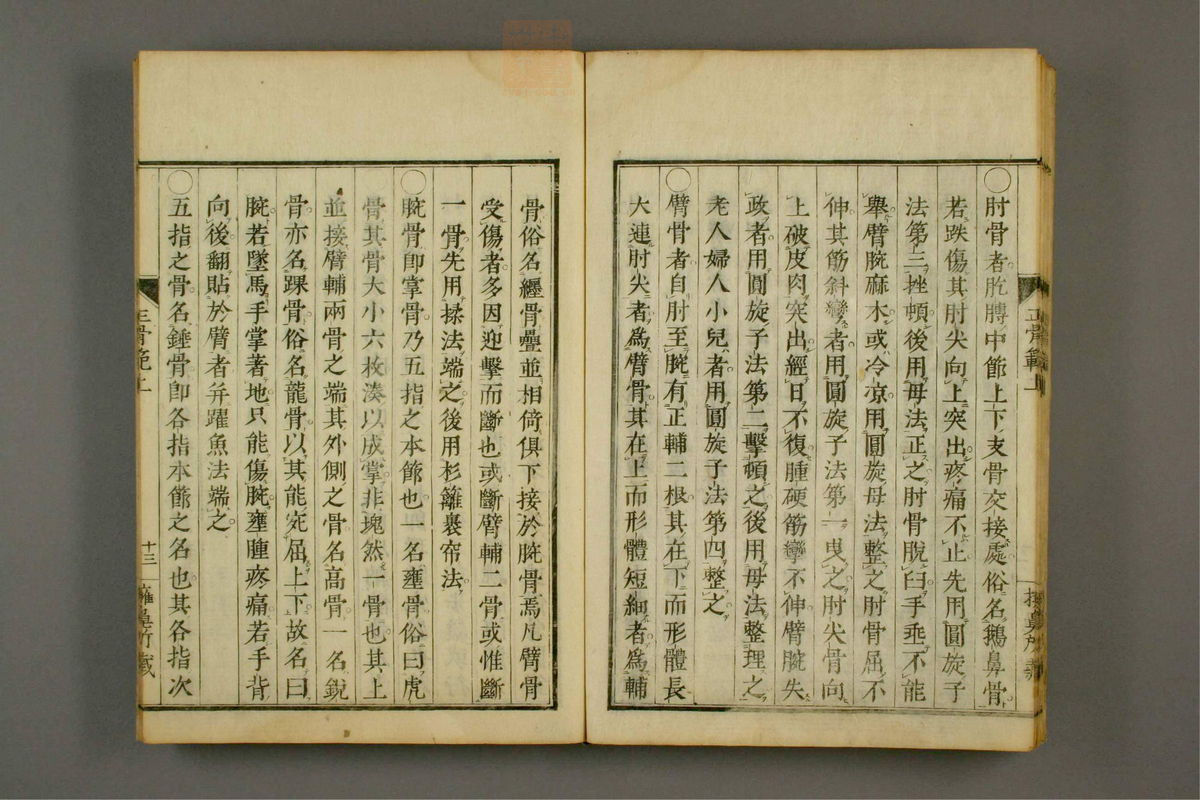 〇肘骨者肐膊中節上下支骨交接處俗名鵝鼻骨
若跌傷其肘尖向上突出疼痛不止先用圓旋子
法第三挫頓後用母法正之肘骨脫臼手垂不能
舉臂腕麻木或冷凉用圓旋母法整之肘骨屈不
伸其筋斜彎者用圓旋子法第一曳之肘尖骨向
上破皮肉突出經日不復腫硬筋攣不伸臂腕失
政者用圓旋子法第二擊頓之後用母法整理之
老人婦人小兒者用圓旋子法第四整之
〇臂骨者自肘至腕有正輔二根其在下而形體長
大連肘尖者為臂骨其在上而形體短細者為輔
骨俗名纏骨疊並相倚俱下接於腕骨焉凡臂骨
受傷者多因迎擊而斷也或斷臂輔二骨或惟斷
一骨先用揉法端之後用杉籬裹帘法
〇腕骨卽掌骨乃五指之本節也一名壅骨俗曰虎
骨其骨大小六枚湊以成掌非塊然一骨也其上
並接臂輔兩骨之端其外側之骨名高骨一名銳
骨亦名踝骨俗名龍骨以其能宛屈上下故名曰
腕若墜馬手掌著地只能傷腕壅腫疼痛若手背
向後翻貼於臂者弁躍魚法端之
〇五指之骨名錘骨卽各指本節之名也其各指次
正骨範上
十三